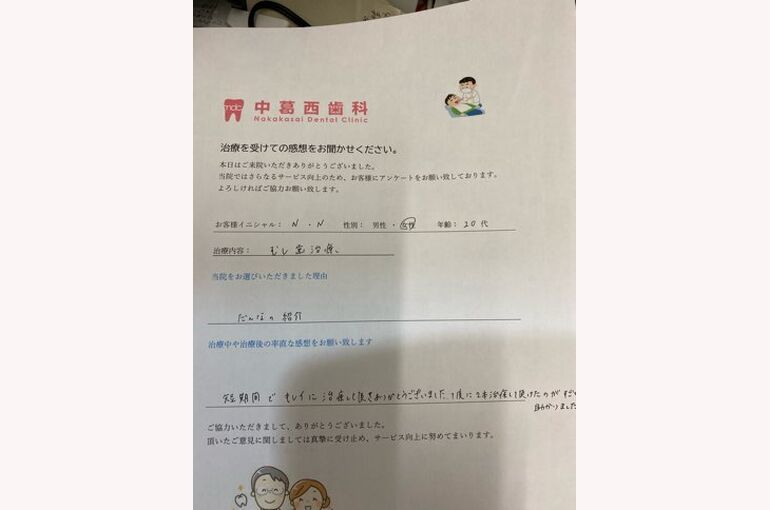 mdc
中葛西歯科
Nakakasai Dental Clinic
治療を受けての感想をお聞かせください。
本日はご来院いただきありがとうございました。
当院ではさらなるサービス向上のため、お客様にアンケートをお願い致しております。
よろしければご協力お願い致します。
お客様イニシャル： N ・ N 性別： 男性 ・ 女性 年齢： 20 代
治療内容： むし歯治療
当院をお選びいただきました理由
だんなの 紹介
治療中や治療後の率直な感想をお願い致します
短期間で キレイに 治療して頂きありがとうございました 1度に2本治療して頂けたのが
助かりました
ご協力いただきまして、ありがとうございました。
頂いたご意見に関しましては真摯に受け止め、サービス向上に努めてまいります。